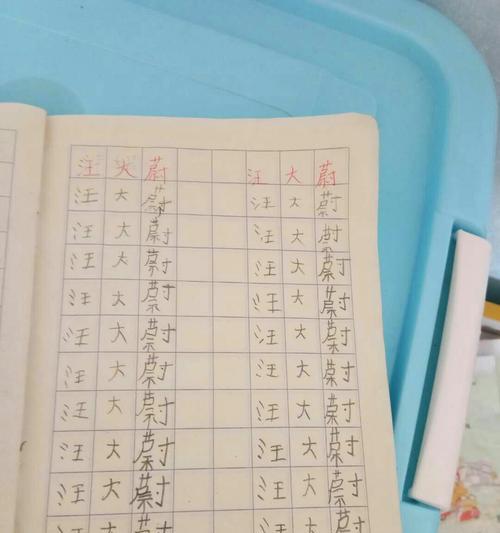 汪大蔚 汪大蔚
汪大蔚 汪大蔚
汪大蔚 汪大蔚
汪大蔚 汪大蔚
汪大蔚 汪大蔚
汪大蔚 汪大蔚
汪大蔚 汪大蔚
汪大蔚 汪大蔚
汪大蔚 汪大蔚
汪大蔚 汪大蔚
汪大蔚 汪大蔚